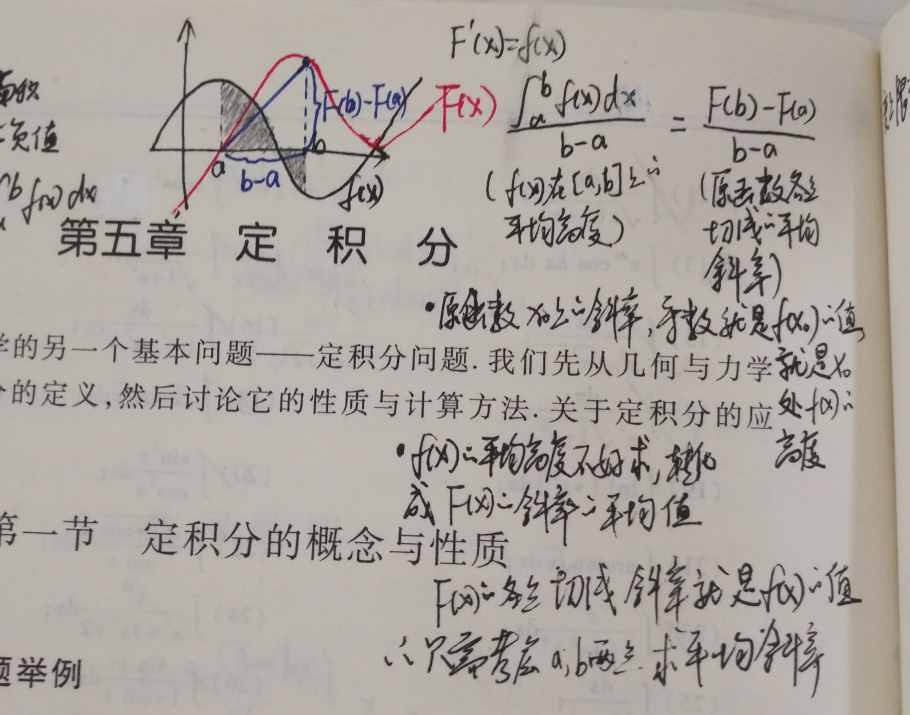 F'(x)=f(x)
面积
负值
∫ₐᵇ f(x)dx
F(b)-F(a)
F(x)
a
b
b-a
f(x)
∫ₐᵇ f(x)dx / b-a = F(b)-F(a) / b-a
(f(x)在[a,b]上の平均高度)
(原函数各点切线の平均斜率)
第五章 定 积 分
•原函数x₀点の斜率,导数就是f(x₀)の值
就是x₀
处f(x)の
高度
学的另一个基本问题——定积分问题.我们先从几何与力学
的定义,然后讨论它的性质与计算方法.关于定积分的应
•f(x)の平均高度不好求,转化
成F(x)の斜率の平均值
第一节 定积分的概念与性质
F(x)の各点切线斜率就是f(x)の值
∴只需考虑a,b两点.求平均斜率
题举例